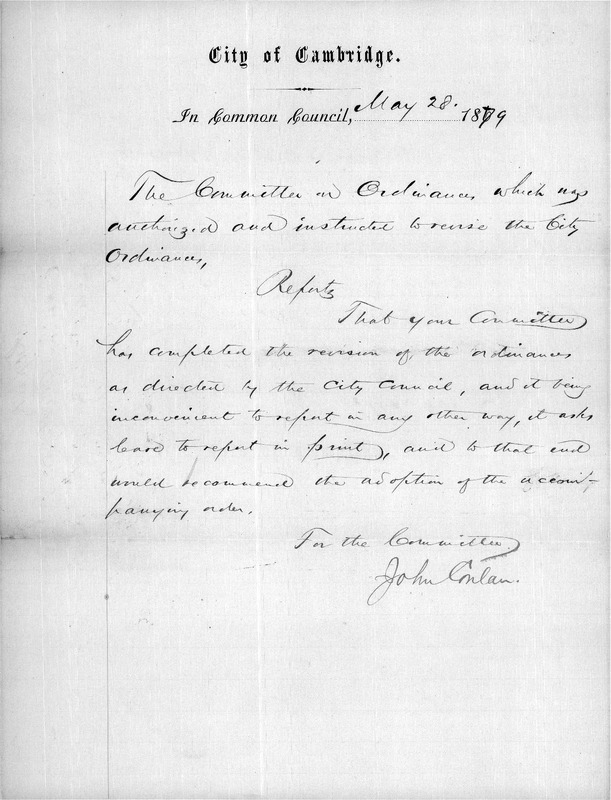 City of Cambridge.
In Common Council, May 28. 1879
The Committee on Ordinances which was
authorized and instructed to revise the City
Ordinances,
Reports
That your Committee
has completed the revision of the ordinances
as directed by the City Council, and it being
inconvenient to report in any other way, it asks
leave to report in print, and to that end
would recommend the adoption of the accom-
panying order.
For the Committee
John Conlan.